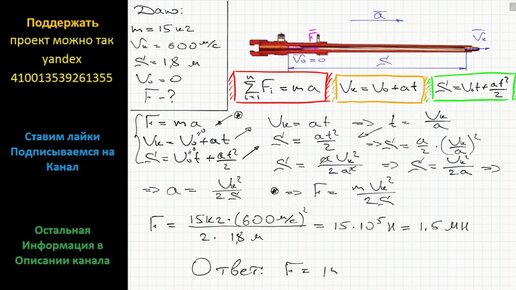 Поддержать
проект можно так
yandex
410013539261355
Ставим лайки
Подписываемся на
Канал
Остальная
Информация в
Описании канала
Дано:
m = 15 кг
Vк = 600 м/с
S = 1,8 м
V₀ = 0
F - ?
a
F
Vк
V₀ = 0
S
n
∑ Fᵢ = ma
i=1
Vк = V₀ + at
S = V₀t + at²/2
F = ma
Vк = V₀ + at
S = V₀t + at²/2
Vк = at => t = Vк/a
S = at²/2 => S = a/2 · (Vк/a)² =>
S = aVк²/2a² => S = Vк²/2a =>
=> a = Vк²/2S => F = mVк²/2S
F = 15 кг · (600 м/с)² / 2 · 1,8 м = 15 · 10⁵ Н = 1,5 МН
Ответ: F = 1